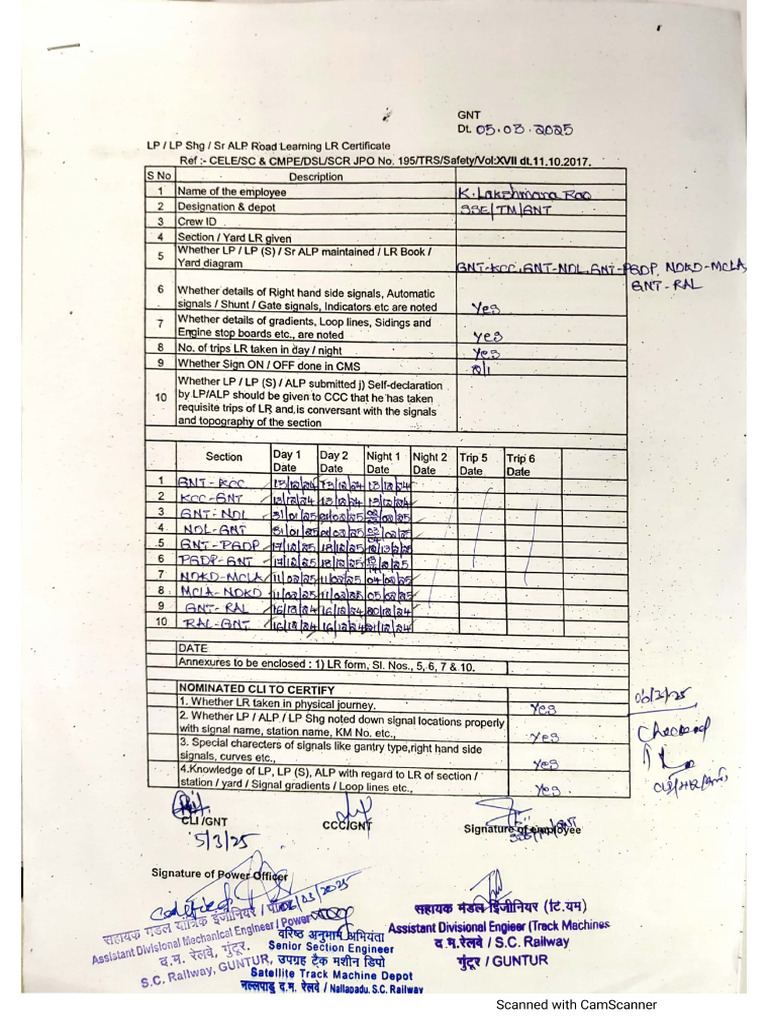 GNT
Dt. 05.03.2025
LP / LP Shg / Sr ALP Road Learning LR Certificate
Ref :- CELE/SC & CMPE/DSL/SCR JPO No. 195/TRS/Safety/Vol:XVII dt.11.10.2017.
S No Description
1 Name of the employee K. Lakshmana Rao
2 Designation & depot SSE/TM/GNT
3 Crew ID
4 Section / Yard LR given
5 Whether LP / LP (S) / Sr ALP maintained / LR Book /
Yard diagram GNT-KCC, GNT-NDL, GNT-PGDP, NDKD-MCLA,
GNT-RAL
6 Whether details of Right hand side signals, Automatic
signals / Shunt / Gate signals, Indicators etc are noted Yes
7 Whether details of gradients, Loop lines, Sidings and
Engine stop boards etc., are noted Yes
8 No. of trips LR taken in day / night Yes
9 Whether Sign ON / OFF done in CMS
10 Whether LP / LP (S) / ALP submitted j) Self-declaration
by LP/ALP should be given to CCC that he has taken
requisite trips of LR and is conversant with the signals
and topography of the section
Section Day 1 Date Day 2 Date Night 1 Date Night 2 Date Trip 5 Date Trip 6 Date
1 GNT-KCC 13/12/24 13/12/24 13/12/24
2 KCC-GNT 13/12/24 13/12/24 13/12/24
3 GNT-NDL 31/01/25 01/02/25
4 NDL-GNT 31/01/25 01/02/25
5 GNT-PGDP 17/12/25 18/12/25
6 PGDP-GNT 17/12/25 18/12/25
7 NDKD-MCLA 11/02/25 11/02/25 04/02/25
8 MCLA-NDKD 11/02/25 11/02/25 05/02/25
9 GNT-RAL 16/12/24 16/12/24 20/12/24
10 RAL-GNT 16/12/24 16/12/24 21/12/24
DATE
Annexures to be enclosed : 1) LR form, Sl. Nos., 5, 6, 7 & 10.
NOMINATED CLI TO CERTIFY
1. Whether LR taken in physical journey. Yes
2. Whether LP / ALP / LP Shg noted down signal locations properly
with signal name, station name, KM No. etc., Yes
3. Special charecters of signals like gantry type,right hand side
signals, curves etc., Yes
4.Knowledge of LP, LP (S), ALP with regard to LR of section /
station / yard / Signal gradients / Loop lines etc., Yes
06/3/25
Checked
CLI/GNT
5/3/25
CCC/GNT
Signature of employee
SSE/TM/GNT
Signature of Power Officer
06/03/2025
सहायक मंडल यांत्रिक इंजीनियर /
Assistant Divisional Mechanical Engineer / Power
द.म. रेलवे, गुंटूर.
S.C. Railway, GUNTUR.
वरिष्ठ अनुभाग अभियंता
Senior Section Engineer
उपग्रह ट्रैक मशीन डिपो
Satellite Track Machine Depot
नल्लपाडु द.म. रेलवे / Nallapadu, S.C. Railway
सहायक मंडल इंजीनियर (टि.यम)
Assistant Divisional Engieer (Track Machines
द.म.रेलवे / S.C. Railway
गुंटूर / GUNTUR
Scanned with CamScanner